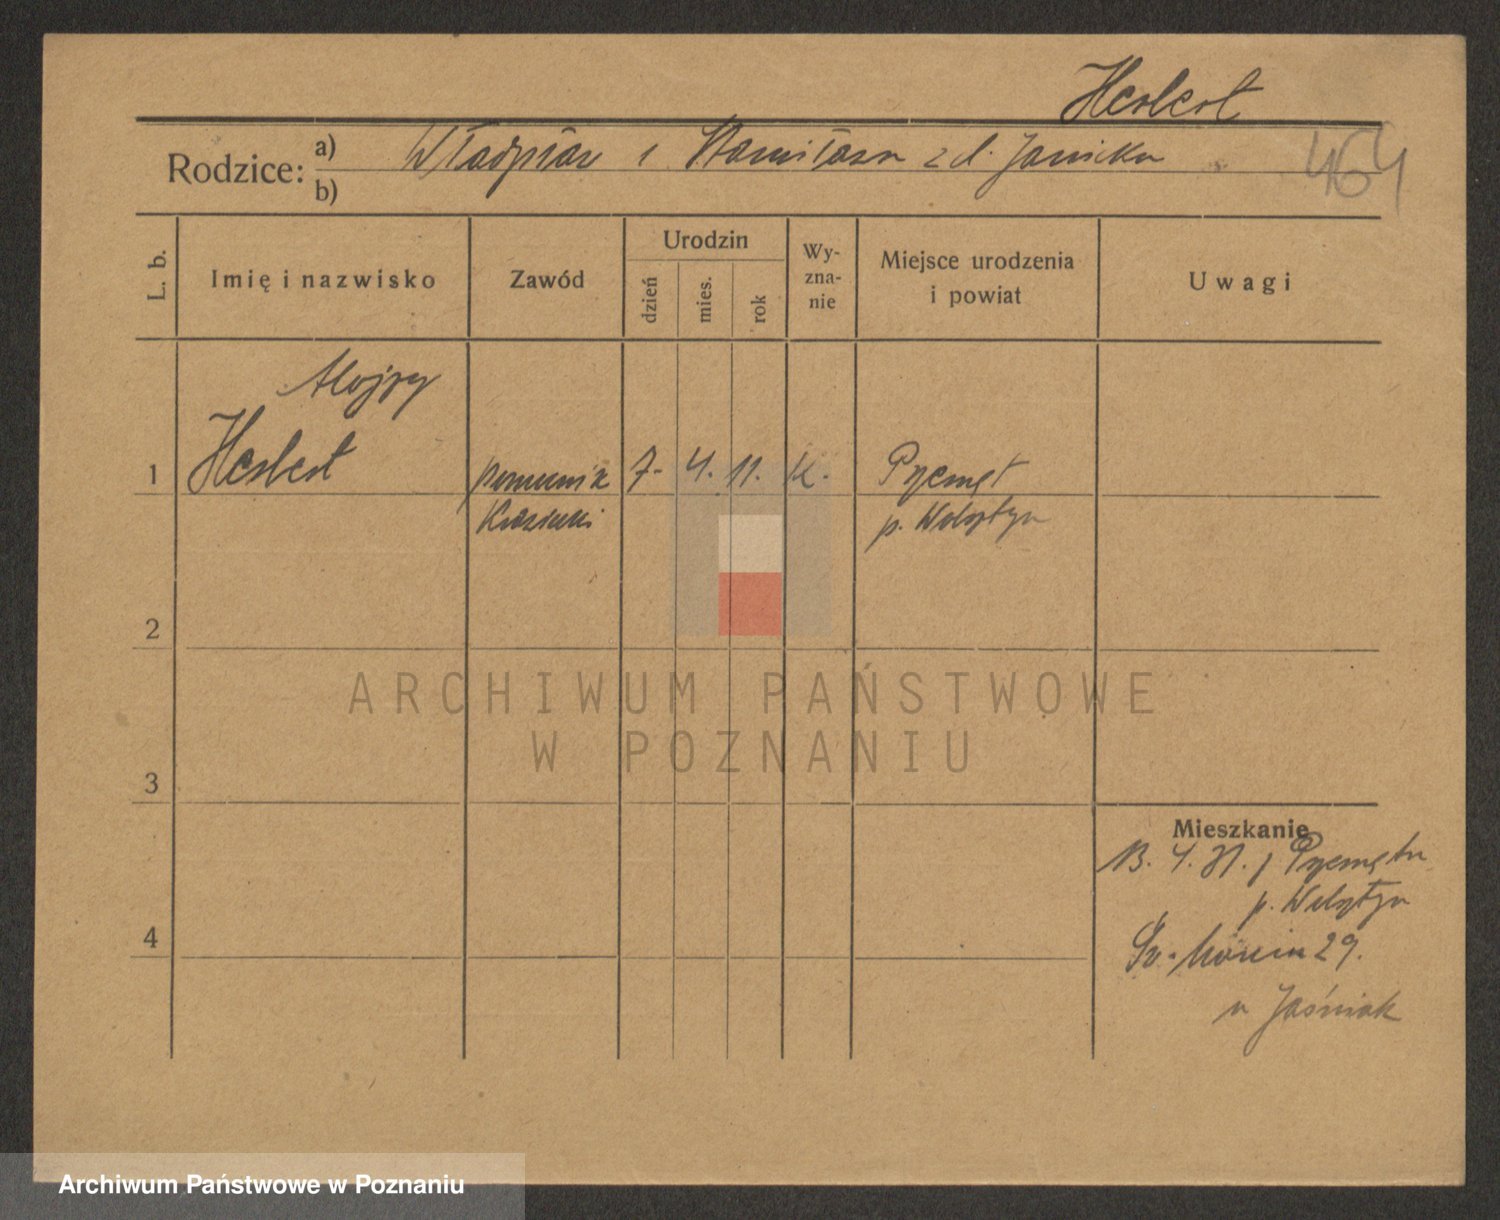 Herbert
Rodzice: a) Władysław i Stanisława z d. Janicka
b)
464
L. b.
Imię i nazwisko
Zawód
Urodzin
dzień
mies.
rok
Wy-
zna-
nie
Miejsce urodzenia
i powiat
Uwagi
Alojzy
1 Herbert
pomocnik 7. 4. 11. k. Przemęt
krawiecki p. Wolsztyn
2
3
4
ARCHIWUM PAŃSTWOWE
W POZNANIU
Mieszkanie
13. 4. 31. z Przemętu
p. Wolsztyn
Św. Marcin 29.
u Jaśniak
Archiwum Państwowe w Poznaniu